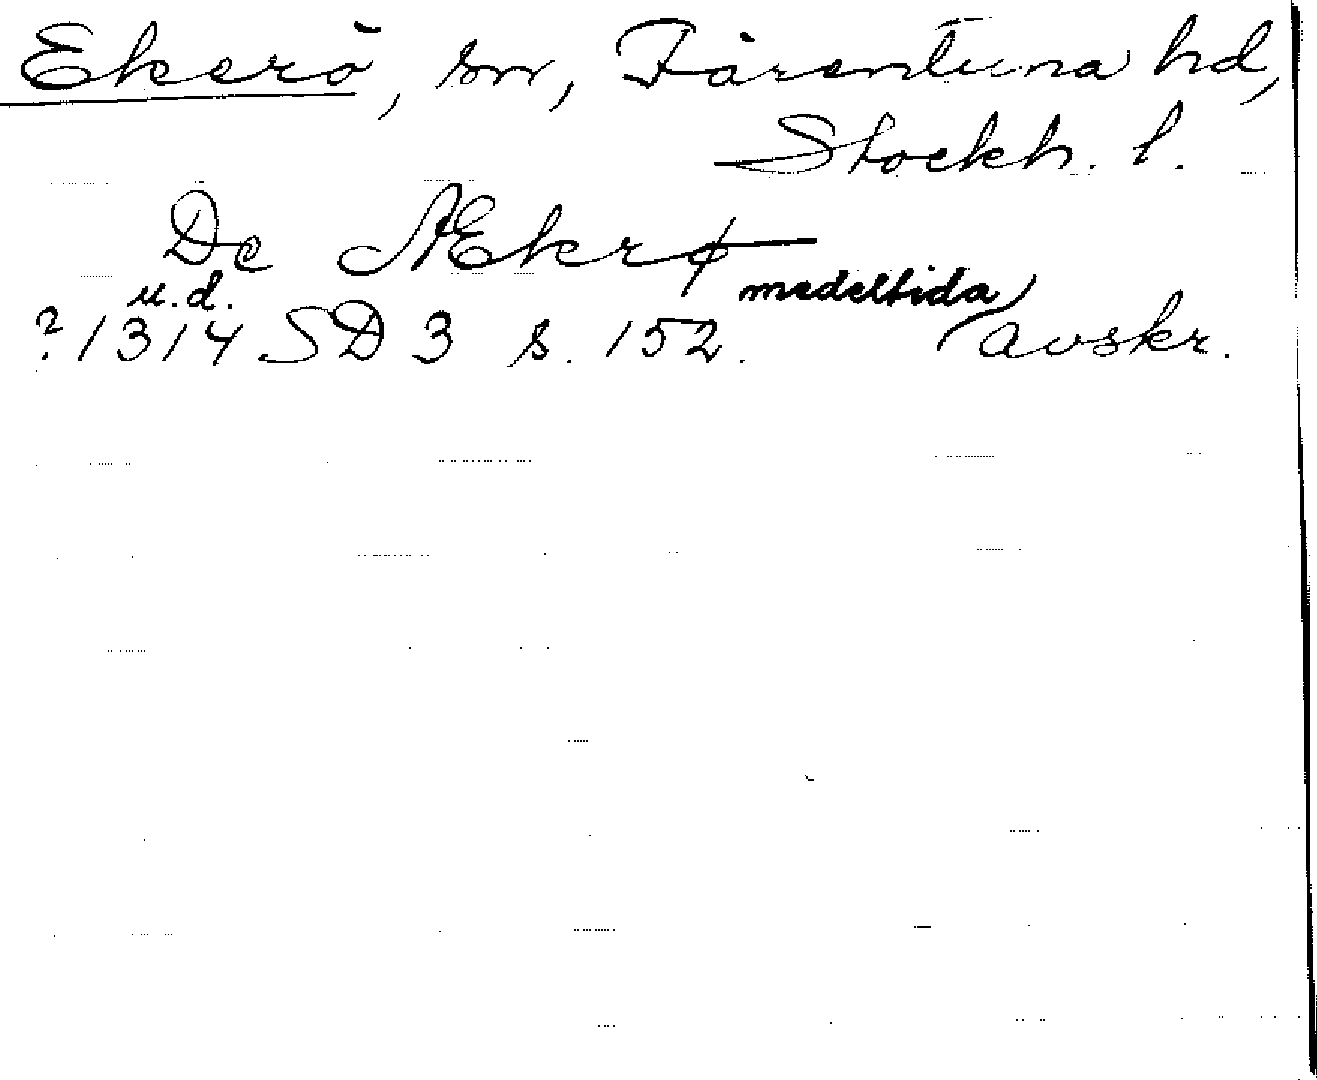 Ekerö, sn, Färentuna hd,
Stockh. l.
De Ækrø
u.d. medeltida
? 1314 SD 3 s. 152. avskr.